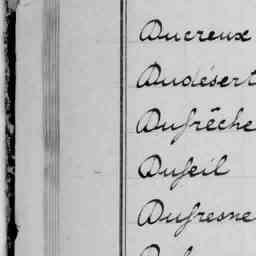 Ducreux
Dudésert
Dufrêche
Dufeil
Dufresne